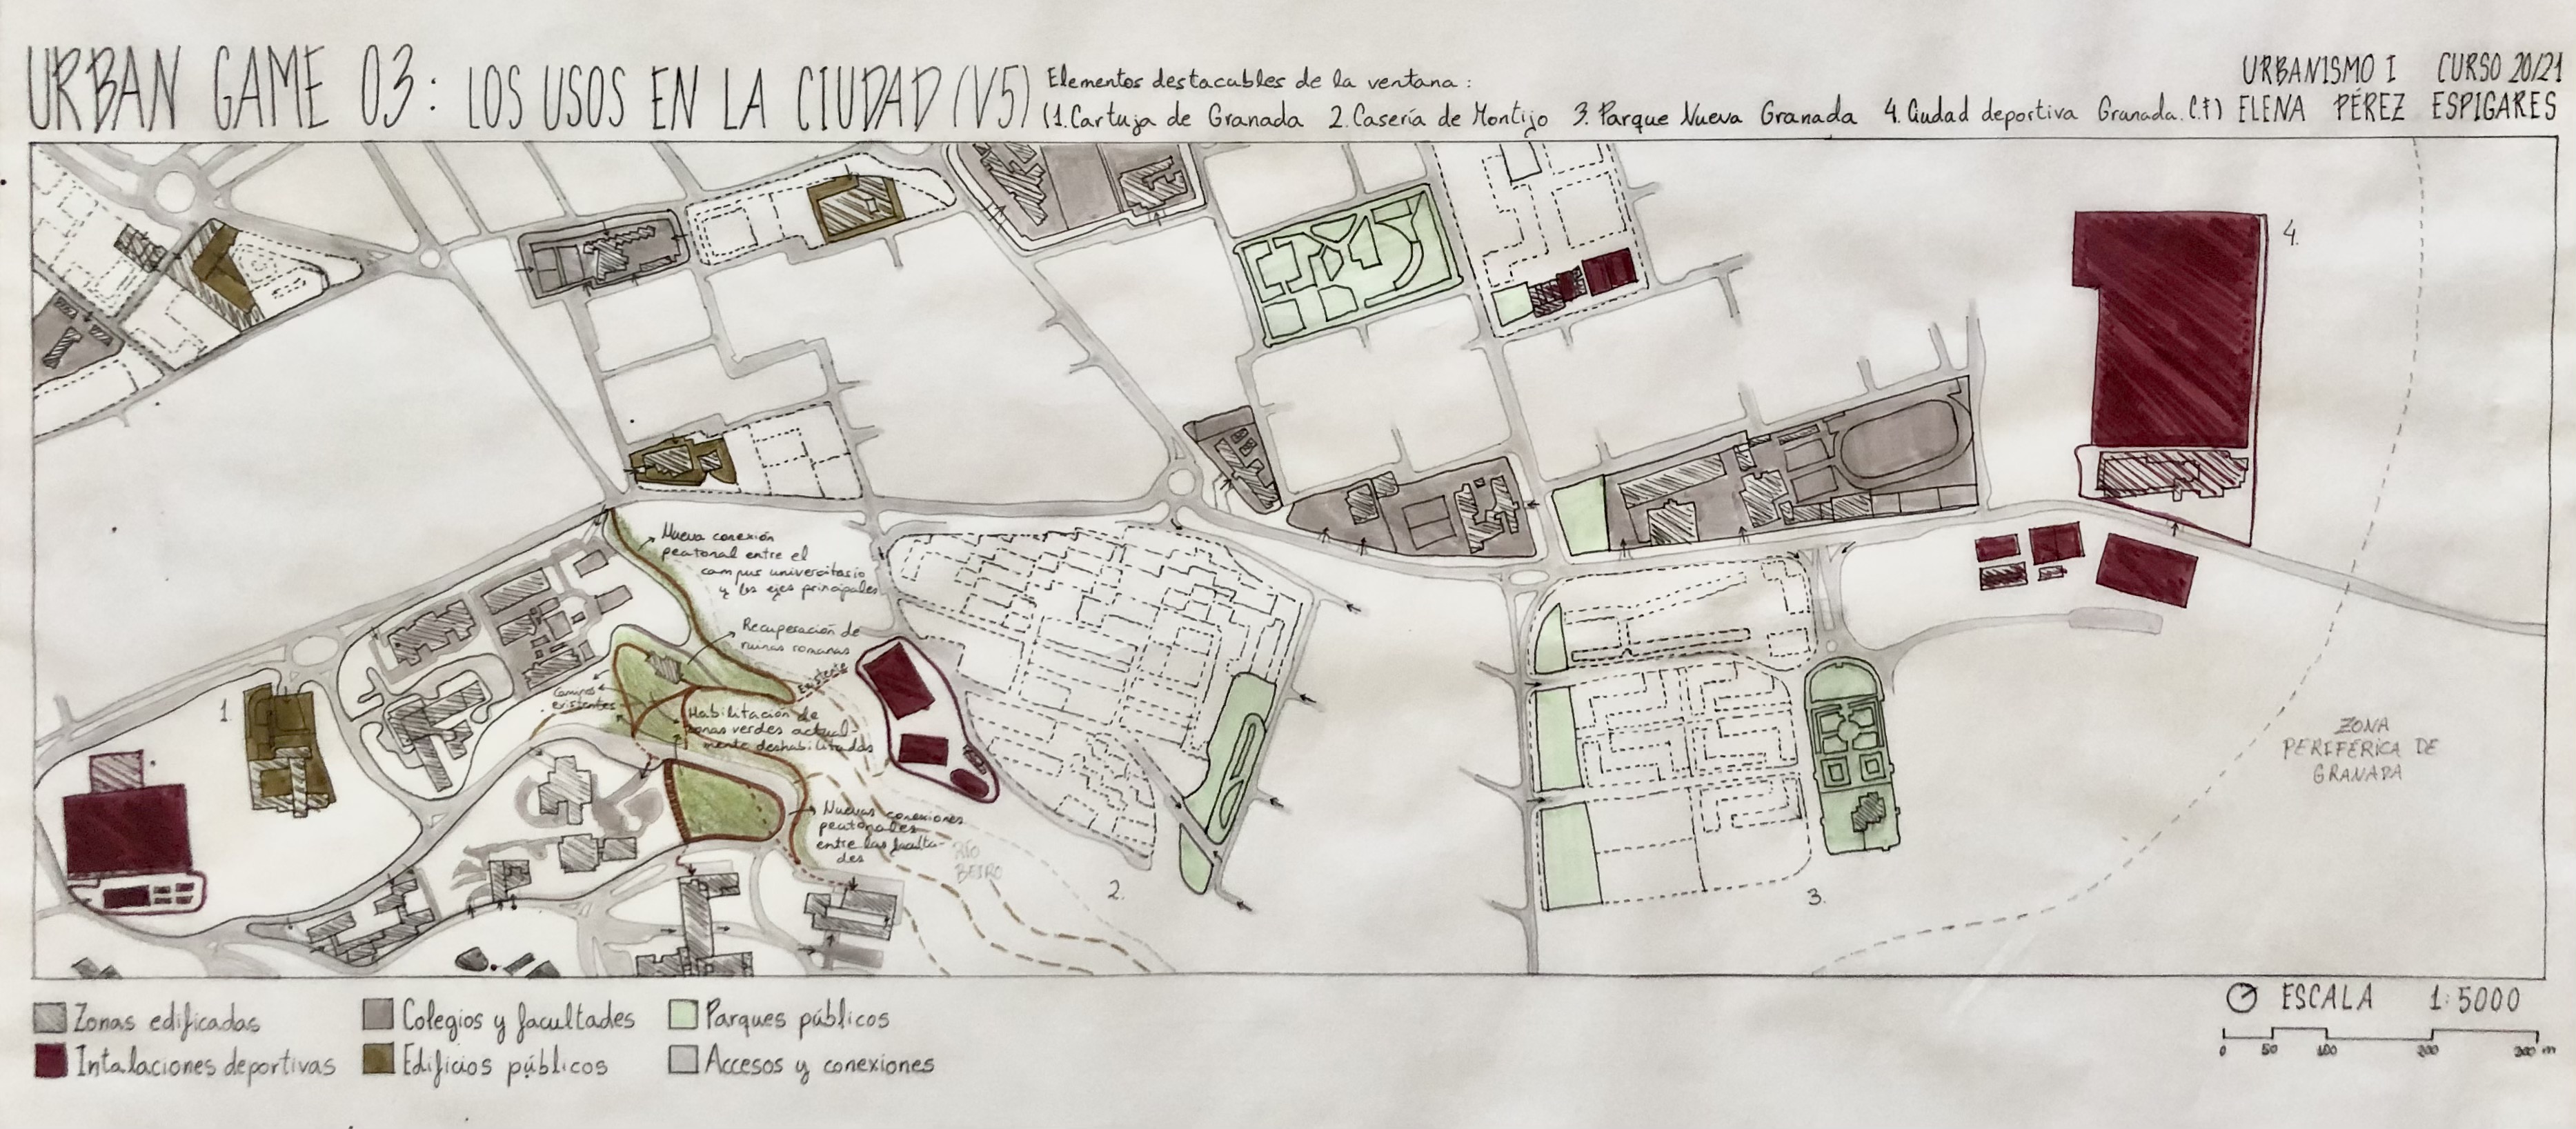 URBAN GAME 03: LOS USOS EN LA CIUDAD (V5)
Elementos destacables de la ventana:
(1.Cartuja de Granada 2.Casería de Montijo 3.Parque Nueva Granada 4.Ciudad deportiva Granada.C.F)
URBANISMO I CURSO 20/21
ELENA PÉREZ ESPIGARES
4.
Nueva conexión
peatonal entre el
campus universitario
y los ejes principales
Recuperación de
ruinas romanas
Existente
Caminos
existentes
Habilitación de
zonas verdes actual-
mente deshabilitadas
Nuevas conexiones
peatonales
entre las faculta-
des
RÍO
BEIRO
1
2.
3.
ZONA
PERIFÉRICA DE
GRANADA
Zonas edificadas
Colegios y facultades
Parques públicos
Intalaciones deportivas
Edificios públicos
Accesos y conexiones
ESCALA 1:5000
0 50 100 200 300 m